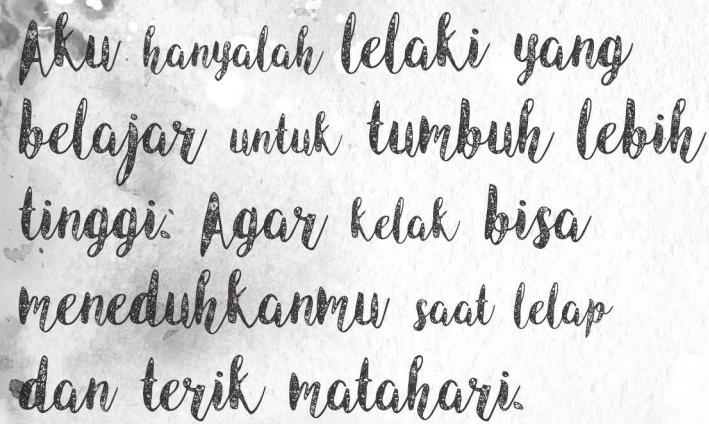 Aku hanyalah lelaki yang
belajar untuk tumbuh lebih
tinggi. Agar kelak bisa
meneduhkanmu saat lelap
dan terik matahari.